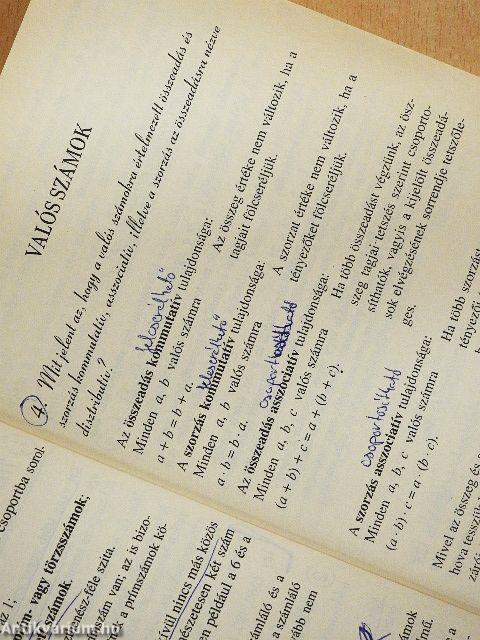 VALÓS SZÁMOK
4 Mit jelent az, hogy a valós számokra értelmezett összeadás és
szorzás kommutatív, asszociatív, illetve a szorzás az összeadásra nézve
disztributív?
„felcserélhető”
Az összeadás kommutatív tulajdonsága:
Minden a, b valós számra
a + b = b + a.
Az összeg értéke nem változik, ha a
tagjait fölcseréljük.
„felcserélhető”
A szorzás kommutatív tulajdonsága:
Minden a, b valós számra
a · b = b · a.
A szorzat értéke nem változik, ha a
tényezőket fölcseréljük.
csoportosítható
Az összeadás asszociatív tulajdonsága:
Minden a, b, c valós számra
(a + b) + c = a + (b + c).
Ha több összeadást végzünk, az ösz-
szeg tagjai tetszés szerint csoporto-
síthatók, vagyis a kijelölt összeadá-
sok elvégzésének sorrendje tetszőle-
ges.
csoportosítható
A szorzás asszociatív tulajdonsága:
Minden a, b, c valós számra
(a · b) · c = a · (b · c).
Ha több szorzást
tényezői
Mivel az összeg és a
hova tesszük
zárój
csoportba sorol-
az 1;
vagy törzsszámok;
számok.
féle szita.
szám van; az is bizo-
a prímszámok kö-
ívül nincs más közös
észetesen két szám
en például a 6 és a
számláló és a
a számláló
ább nem
számok
Antikvarium.hu